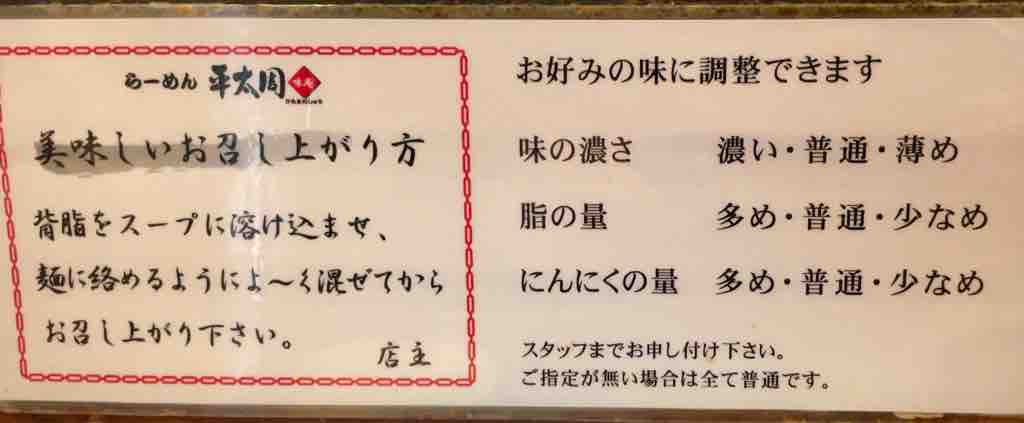 らーめん 平太周 味庵
美味しいお召し上がり方
背脂をスープに溶け込ませ、
麺に絡めるようによ〜く混ぜてから
お召し上がり下さい。
店主
お好みの味に調整できます
味の濃さ 濃い・普通・薄め
脂の量 多め・普通・少なめ
にんにくの量 多め・普通・少なめ
スタッフまでお申し付け下さい。
ご指定が無い場合は全て普通です。